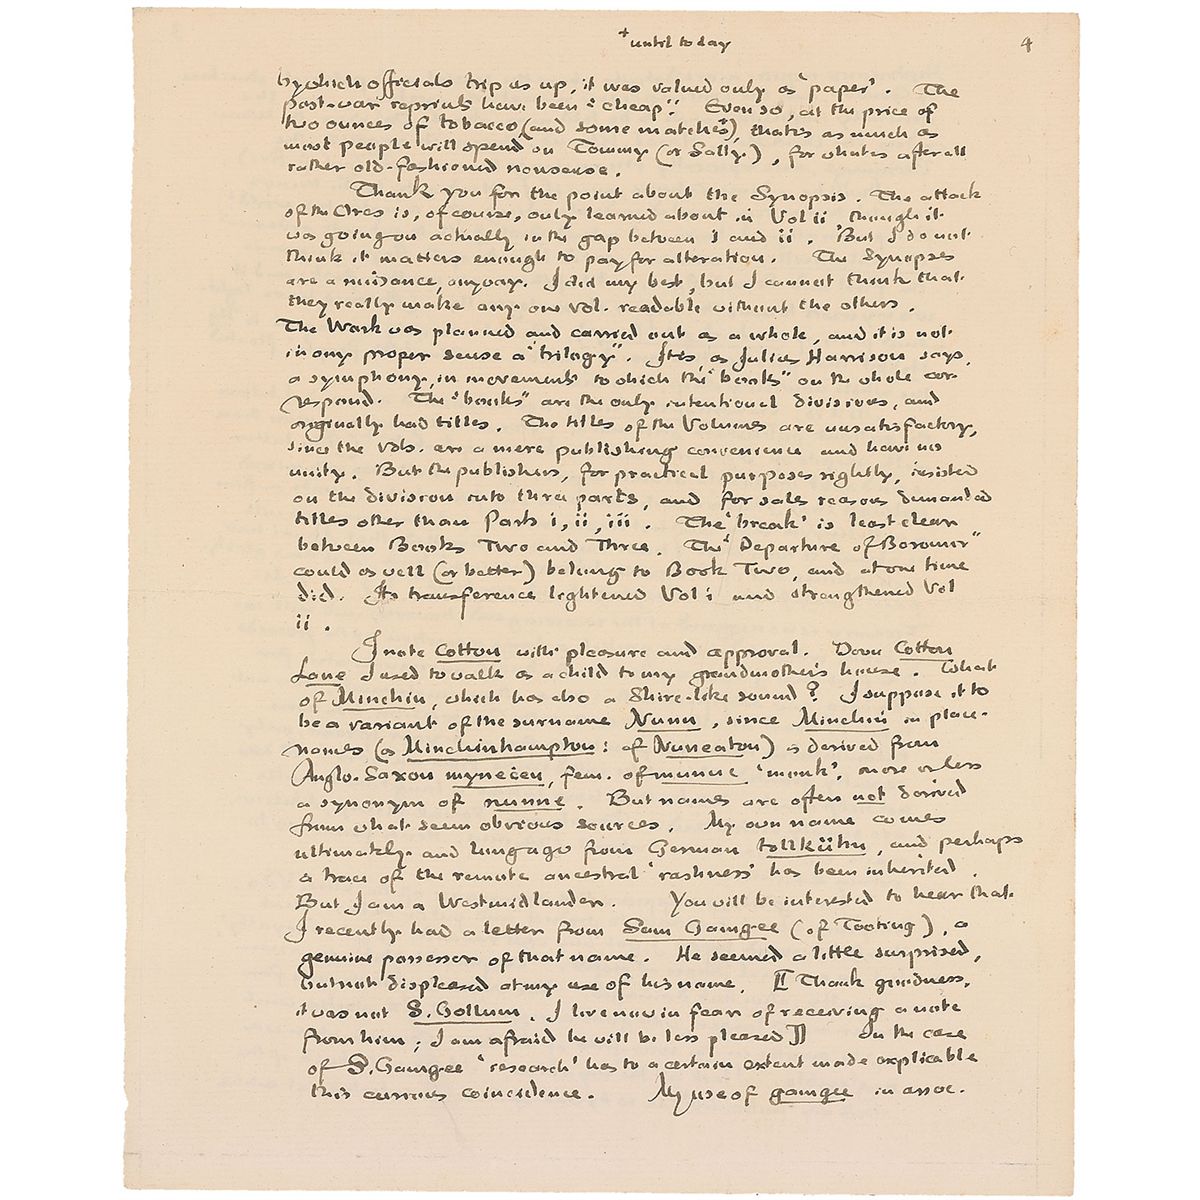 + until today
4
by which officials trip us up, it was valued only as 'paper'. The
post-war reprints have been "cheap"! Even so, at the price of
two ounces of tobacco, (and some matches+), that's as much as
most people will spend on Tommy (or Sally), for what is after all
rather old-fashioned nonsense.
Thank you for the point about the Synopsis. The attack
of the Orcs is, of course, only learned about in Vol ii, though it
was going on actually in the gap between i and ii. But I do not
think it matters enough to pay for alteration. The Synopses
are a nuisance, anyway. I did my best, but I cannot think that
they really make any one vol. readable without the others.
The Work was planned and carried out as a whole, and it is not
in any proper sense a "trilogy". It is, as Julius Harrison says,
a symphony, in movements to which the "books" on the whole cor-
respond. The "books" are the only intentional divisions, and
originally had titles. The titles of the Volumes are unsatisfactory,
since the vols. are a mere publishing convenience and have no
unity. But the publishers, for practical purposes rightly, insisted
on the division into three parts, and for sales reasons demanded
titles other than Parts i, ii, iii. The 'break' is least clear
between Books Two and Three. The "Departure of Boromir"
could as well (or better) belong to Book Two, and at one time
did. Its transference lightened Vol i and strengthened Vol
ii.
I note Cotton with pleasure and approval. Down Cotton
Lane I used to walk as a child to my grandmother's house. What
of Minchin, which has also a Shire-like sound? I suppose it to
be a variant of the surname Nunn, since Minchin in place-
names (as Minchinhampton: cf Nuneaton) is derived from
Anglo-Saxon mynećen, fem. of munuc 'monk', more or less
a synonym of nunne. But names are often not derived
from what seem obvious sources. My own name comes
ultimately and long ago from German tollkühn, and perhaps
a trace of the remote ancestral 'rashness' has been inherited.
But I am a Westmidlander. You will be interested to hear that
I recently had a letter from Sam Gamgee (of Tooting), a
genuine possessor of that name. He seemed a little surprised,
but not displeased at my use of his name. [[Thank goodness,
it was not S. Gollum. I live now in fear of receiving a note
from him; I am afraid he will be less pleased]] In the case
of S. Gamgee 'research' has to a certain extent made explicable
this curious coincidence. My use of gamgee in assoc.